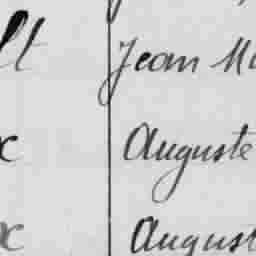 lt Jean
x Auguste
x August